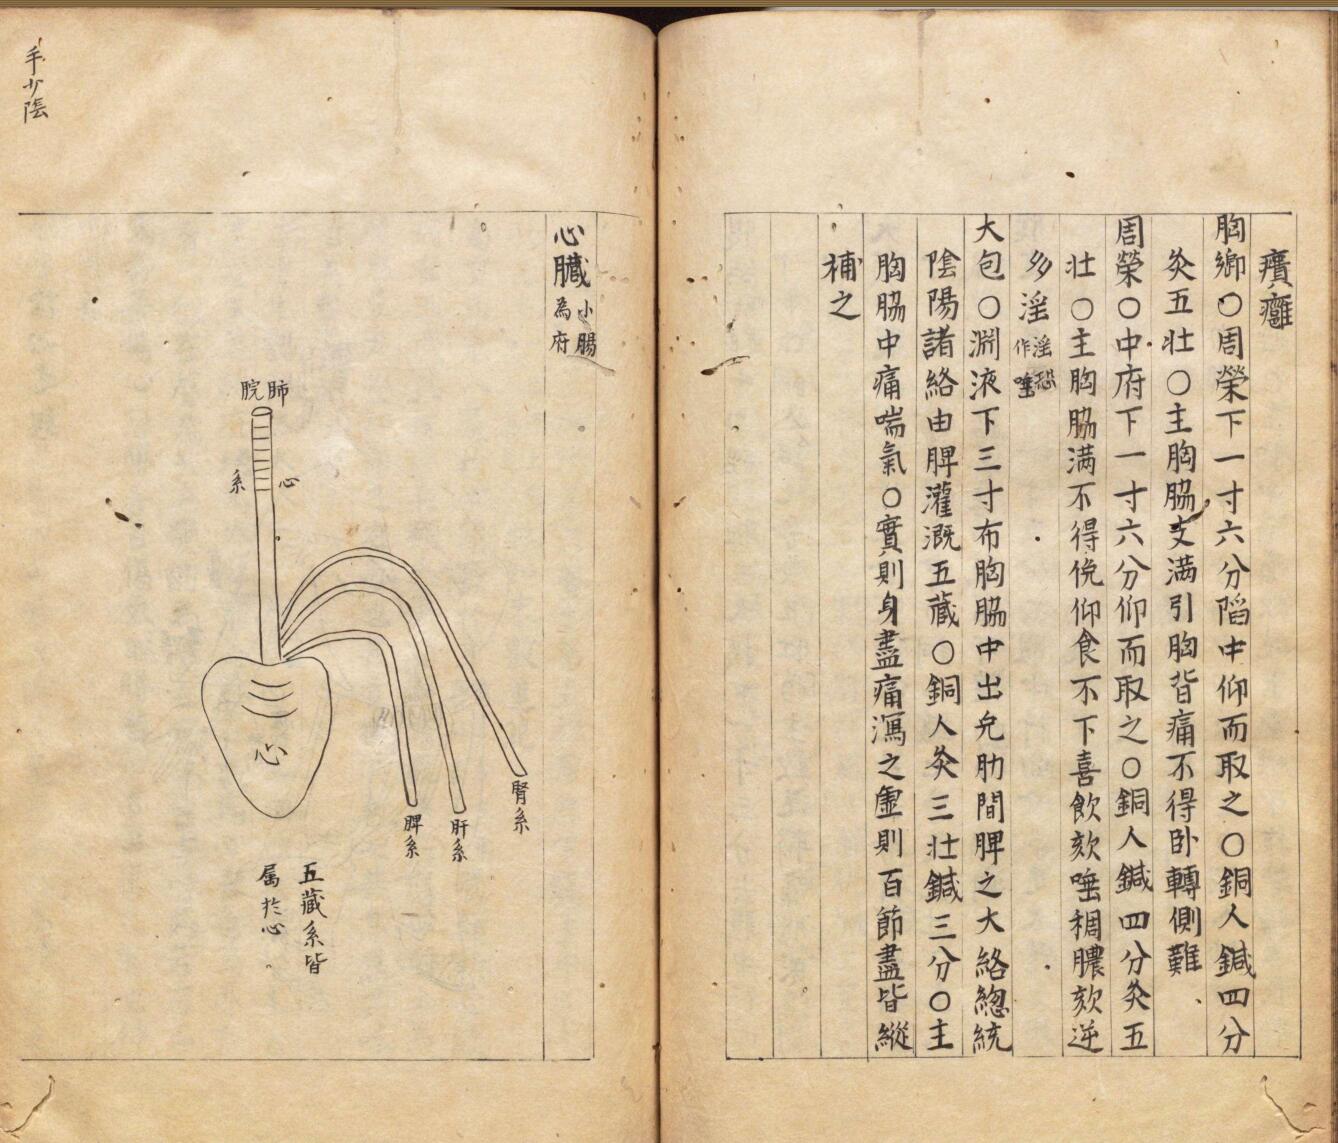 癀癰
胸鄉〇周榮下一寸六分陷中仰而取之〇銅人鍼四分
灸五壮〇主胸脇支満引胸背痛不得卧轉側難
周榮〇中府下一寸六分仰而取之〇銅人鍼四分灸五
壮〇主胸脇満不得俛仰食不下喜飲欬唾稠膿欬逆
多淫淫恐作唾
大包〇淵液下三寸布胸脇中出九肋間脾之大絡緫統
陰陽諸絡由脾灌溉五藏〇銅人灸三壮鍼三分〇主
胸脇中痛喘氣〇實則身盡痛瀉之虛則百節盡皆縱
補之
手少陰
心臟小腸為府
肺脘
心系
心
腎系
肝系
脾系
五藏系皆
属於心